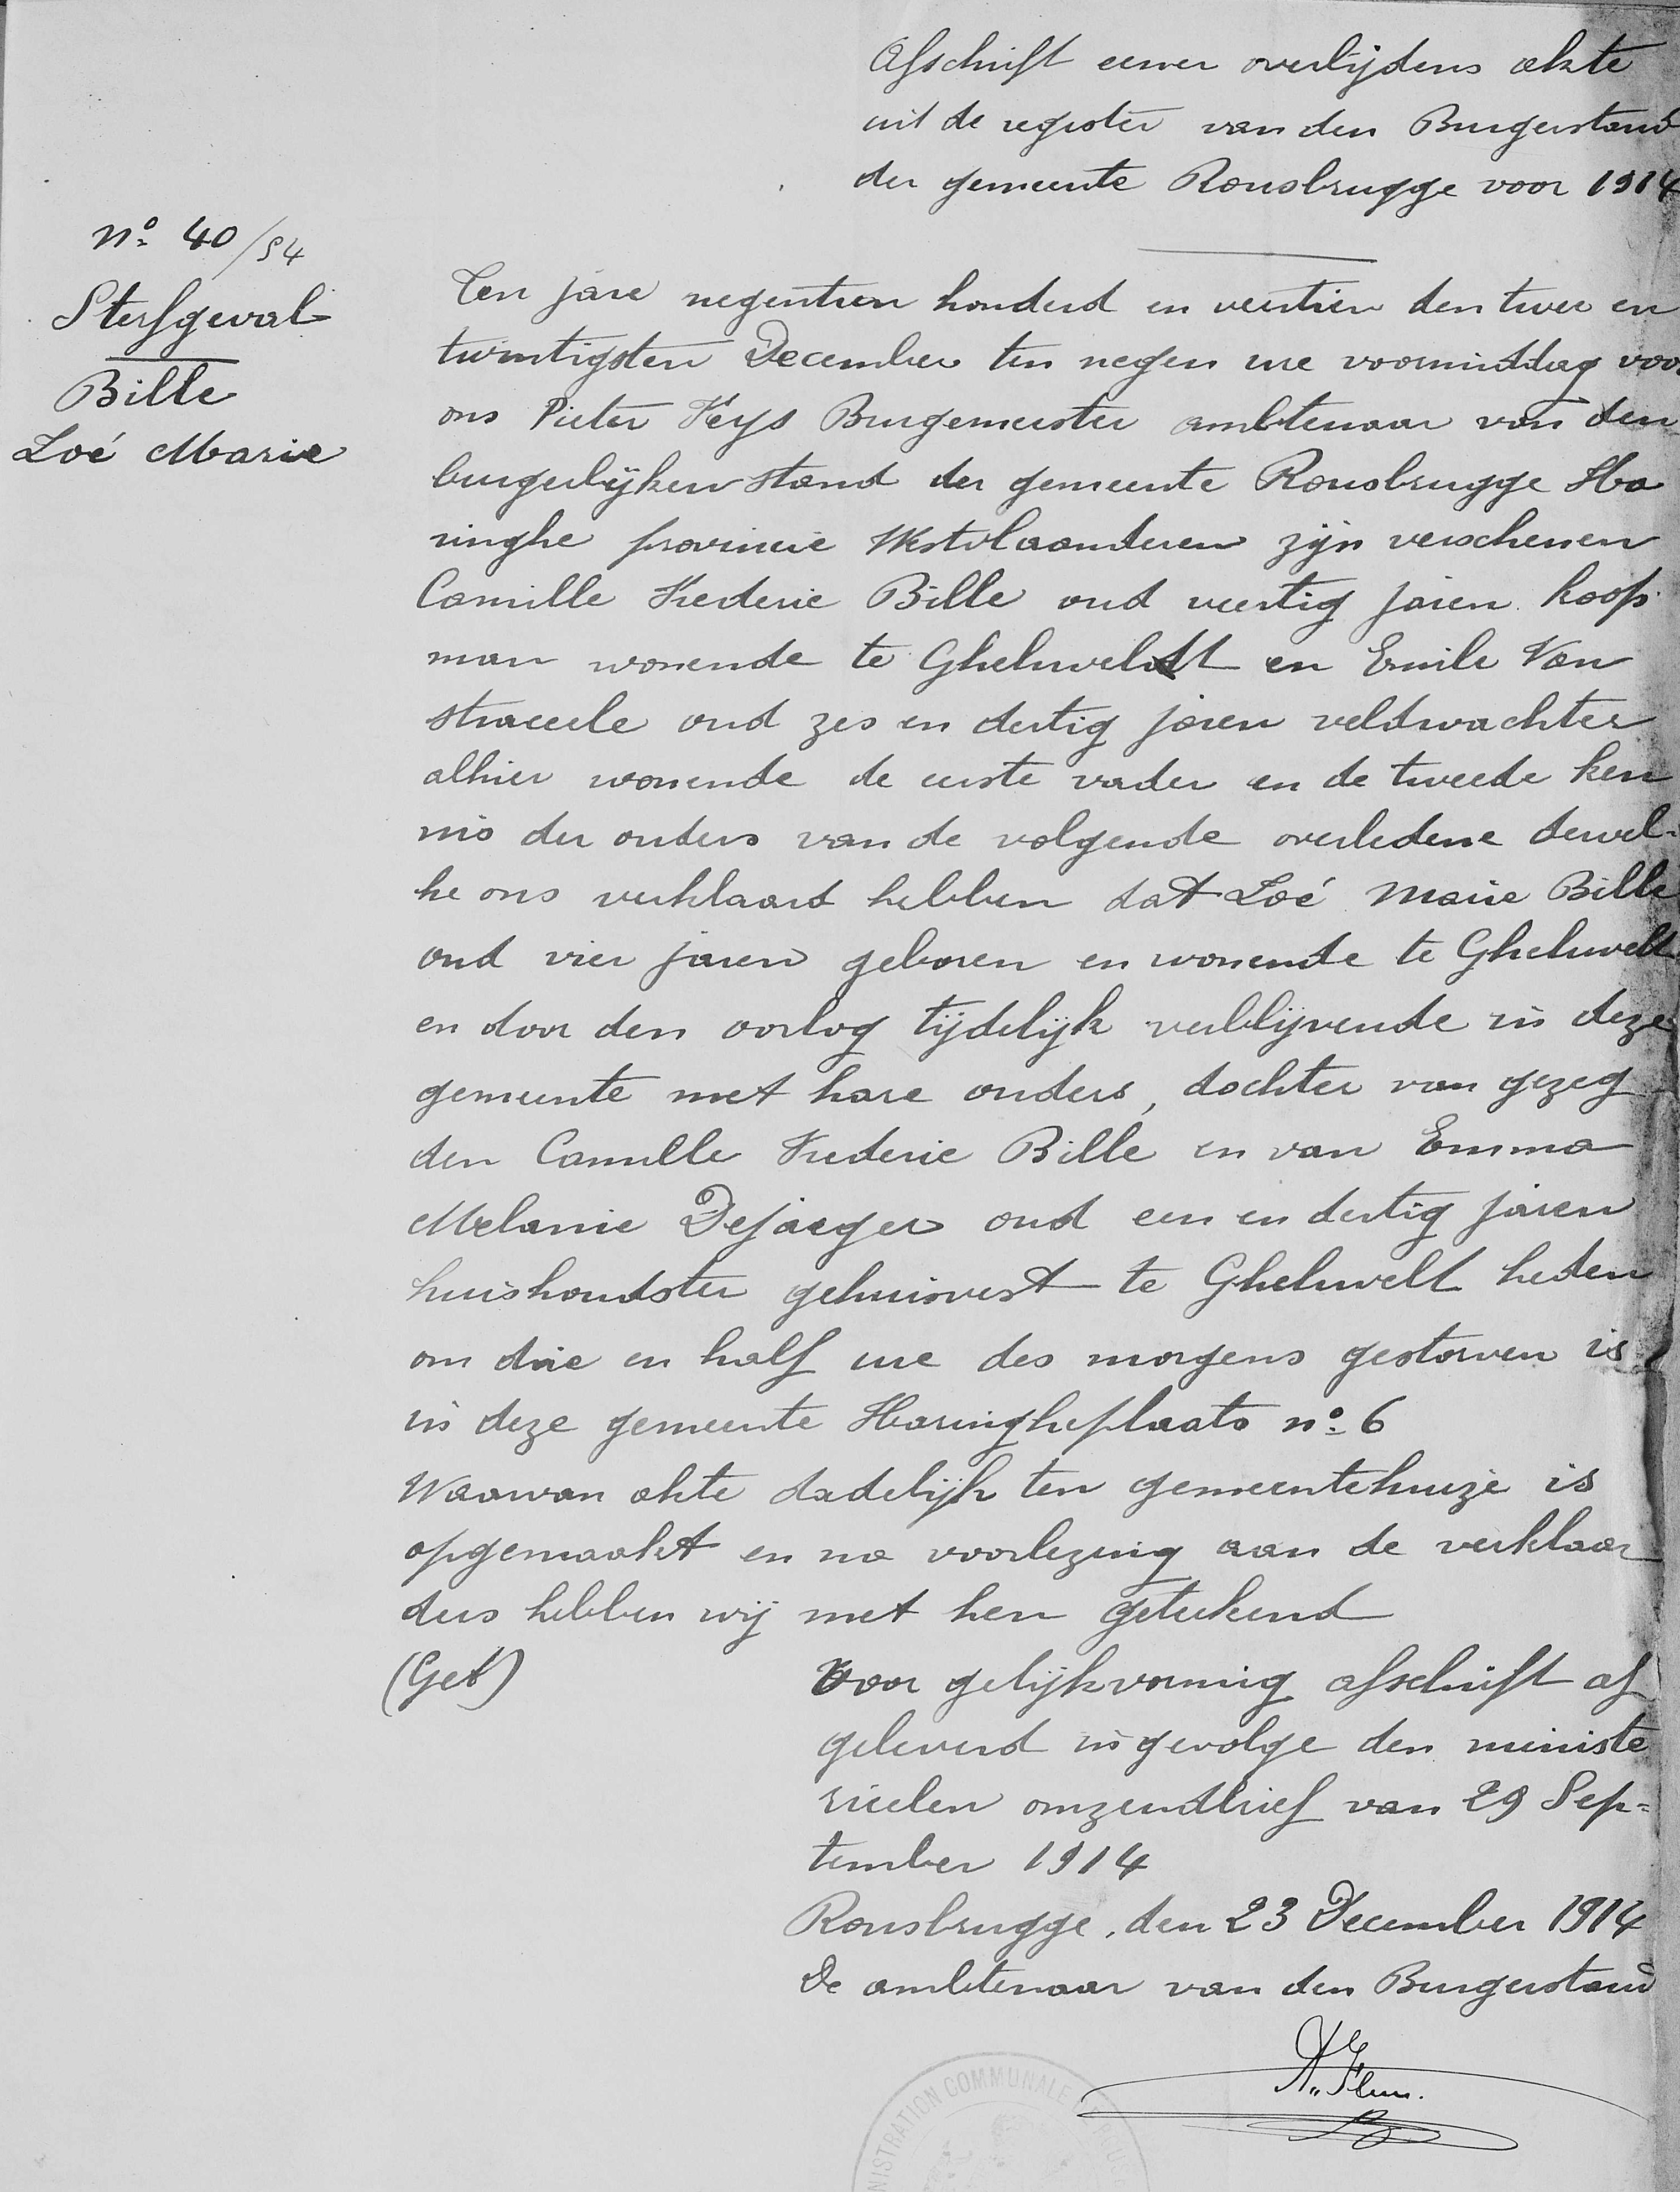 Afschrift eener overlijdens akte
uit de register van den Burgerstand
der gemeente Rousbrugge voor 1914
Nº 40/54
Sterfgeval
Bille
Zoé Marie
Ten jare negentien honderd en veertien den twee en
twintigsten December ten negen ure voormiddag voor
ons Pieter Feys Burgemeester ambtenaar van den
burgerlijken stand der gemeente Rousbrugge Ha
ringhe provincie Westvlaanderen zijn verschenen
Camille Frederic Bille oud veertig jaren koop
man wonende te Gheluveldt en Emile Van
straceele oud zes en dertig jaren veldwachter
alhier wonende de eerste vader en de tweede ken
nis der ouders van de volgende overledene dewel-
ke ons verklaard hebben dat Zoé Marie Bille
oud vier jaren geboren en wonende te Gheluvelt
en door den oorlog tijdelijk verblijvende in deze
gemeente met hare ouders, dochter van gezeg
den Camille Frederic Bille en van Emma
Melanie Dejaeger oud een en dertig jaren
huishoudster gehuisvest te Gheluvelt heden
om drie en half ure des morgens gestorven is
in deze gemeente Haringheplaats nº 6
Waarvan akte dadelijk ten gemeentehuize is
opgemaakt en na voorlezing aan de verklaar
ders hebben wij met hen geteekend
(Get)
Voor gelijkvormig afschrift af
geleverd in gevolge den ministe
rieelen omzendbrief van 29 Sep-
tember 1914
Rousbrugge, den 23 December 1914
De ambtenaar van den Burgerstand
ADMINISTRATION COMMUNALE